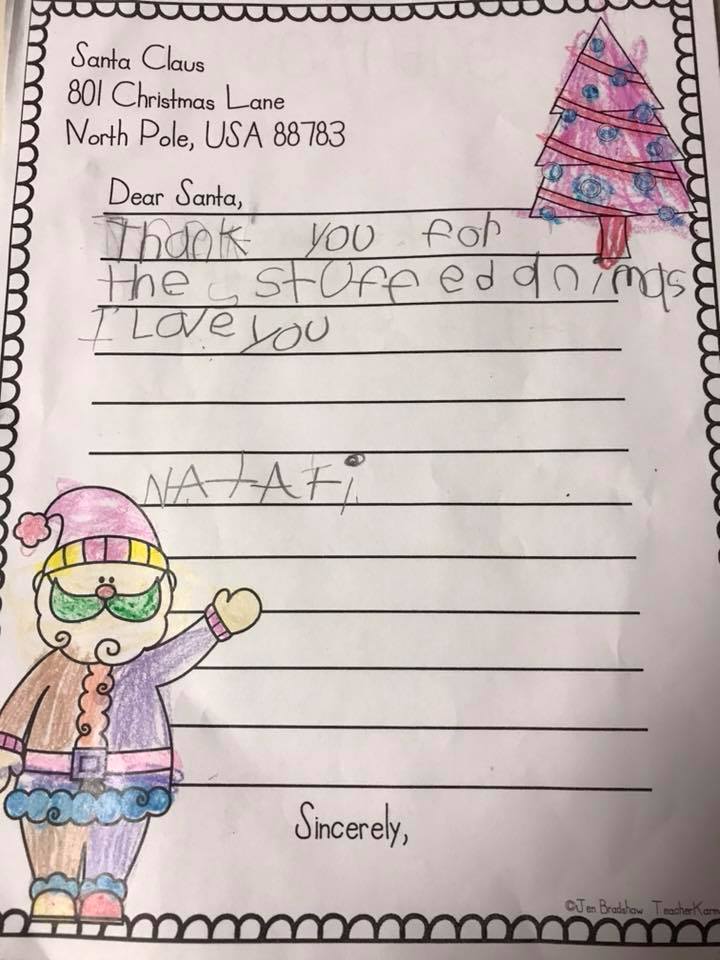 Santa Claus
801 Christmas Lane
North Pole, USA 88783
Dear Santa,
Thank you for
the stuffed animals
I Love you
NATAFi
Sincerely,
©Jen Bradshaw TeacherKarm